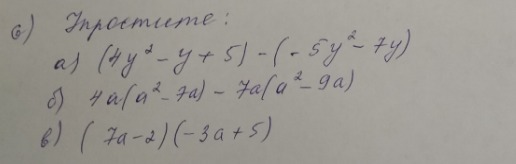 6) Упростите:
а) (4y² - y + 5) - (- 5y² - 7y)
б) 4a(a² - 7a) - 7a(a² - 9a)
в) (7a - 2)(-3a + 5)